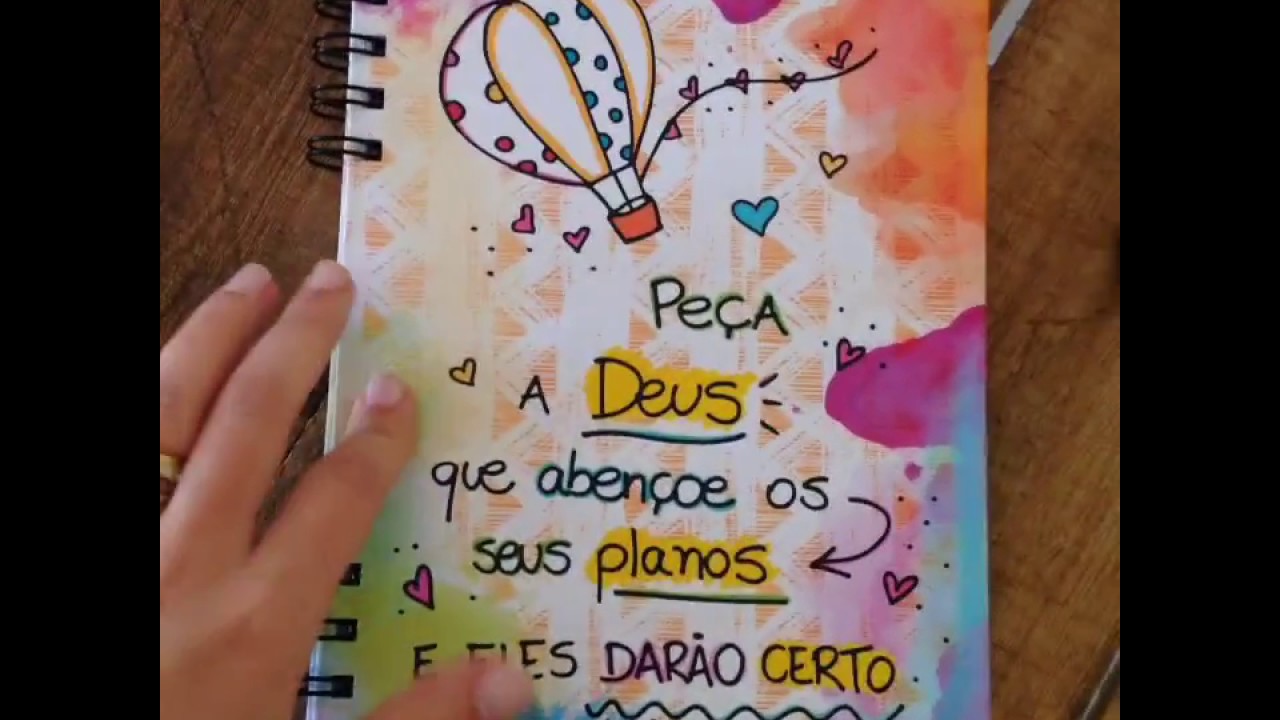 PEÇA
A Deus
que abençoe os
seus planos
E ELES DARÃO CERTO